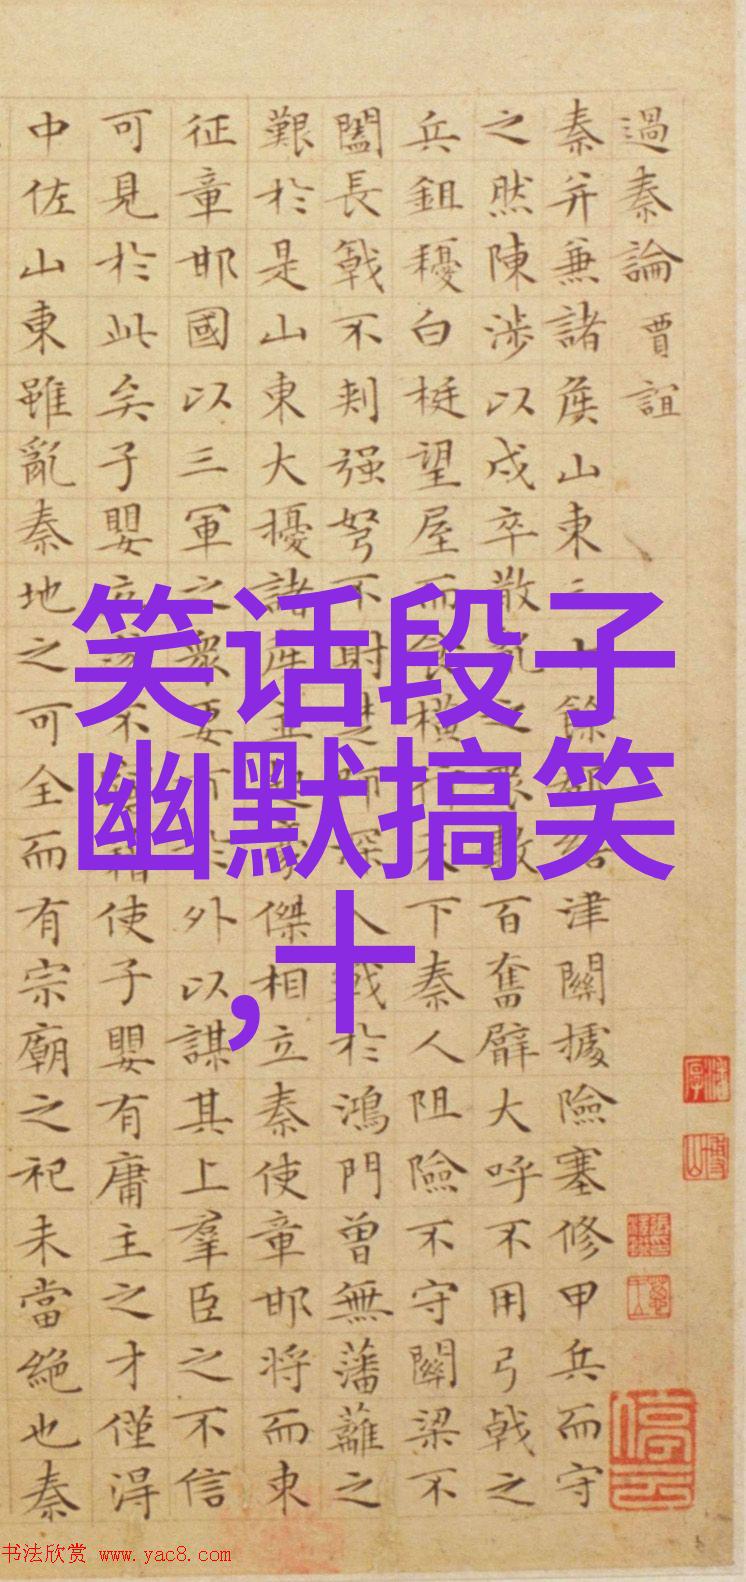 過秦論 賈誼
秦并兼諸侯山東三十餘郡津關據險塞修甲兵而守
之然陳涉以戍卒散亂之衆數百奮臂大呼不用弓戟之
兵鉏耰白梃望屋而食橫行天下秦人阻險不守關梁不
闔長戟不刺强弩不射楚師深入戰於鴻門曾無藩蘺之
艱於是山東大擾諸侯並起豪傑相立秦使章邯將而東
征章邯國以三軍之衆要市於外以謀其上羣臣之不信
可見於此矣子嬰立遂不寤藉使子嬰有庸主之才僅得
中佐山東雖亂秦地之可全而有宗廟之祀未當絶也秦
笑话段子
幽默搞笑
,十
书法欣赏 www.yac8.com